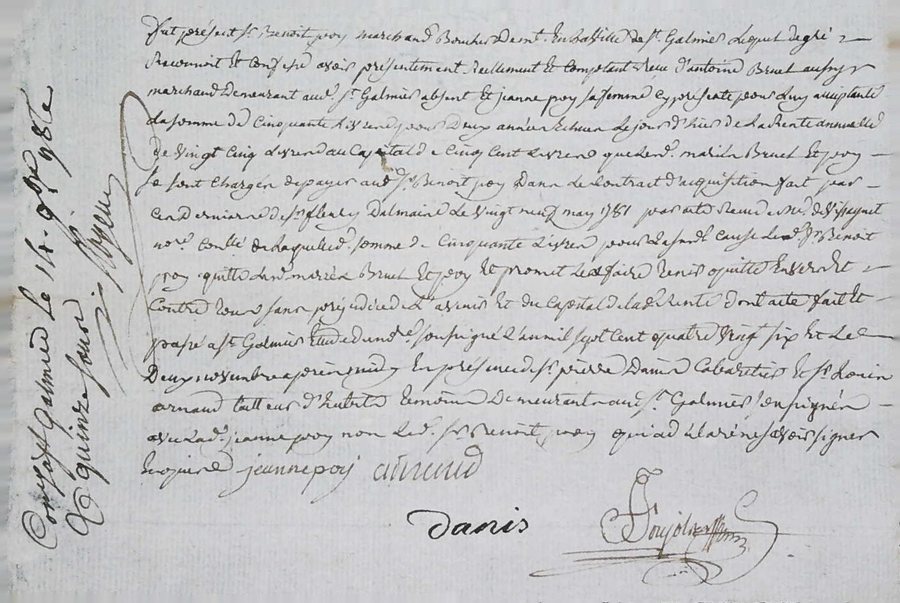 fut présent sr. Benoit poy marchand Boucher demt. En la ville de st. Galmier Lequel de gré
Reconnoit Et Confesse avoir présentement Reellement Et Comptant Reçu d'antoine Bruel aussy
marchand Demeurant aud. st. Galmier absent Et jeanne poy sa femme Cy presente pour Luy acceptante
La somme de Cinquante Livres pour Deux années Echues Le jour d'hier de La Rente annuelle
de vingt Cinq Livres au Capital de Cinq Cent Livres que Lesd. mariés Bruel Et poy
se sont Chargés de payer aud. sr. Benoit poy Dans Le Contract d'acquisition fait par
Ces derniers de sr. fleury Dalmais Le vingt neuf may 1781 par acte Reçu
nore. De Laquelle d. somme de Cinquante Livres pour La susd. Cause Led. sr. Benoit
poy quitte Lesd. mariés Bruel Et poy Et promet Les faire tenir quitte Envers Et
Contre tous sans préjudice de L'avenir Et du Capital de lad. Rente dont acte fait Et
passé a st. Galmier Etude du nore. soussigné L'an mil sept Cent quatre vingt six Et Le
Deux novembre après midy En presence de sr. pierre Danis Cabaretier Et sr.
arnaud tailleur d'habits temoins Demeurants aud. st. Galmier soussignés
avec Lad. jeanne poy non Led. sr. Benoit poy qui a declaré ne savoir signer
Enquis jeanne poy arnaud
danis
Conté a St Galmier Le 14 9bre 1786
R quinze sous